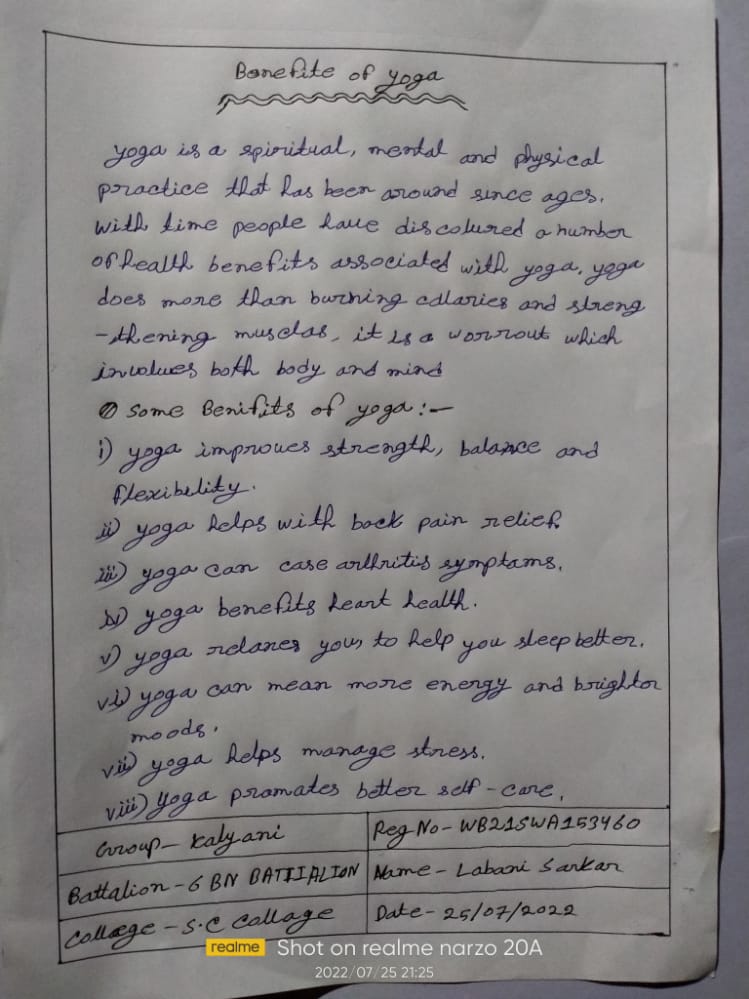 Benefite of yoga
yoga is a spiritual, mental and physical
practice that has been around since ages.
with time people have discoured a number
of health benefits associated with yoga. yoga
does more than burning calaries and streng
-thening musclas, it is a worrout which
involues both body and mind
some Benifits of yoga:-
i) yoga improues strength, balance and
flexibility.
ii) yoga helps with back pain relief
iii) yoga can case arthritis symptams.
iv) yoga benefits heart health.
v) yoga relaxes you, to help you sleep better.
vi) yoga can mean more energy and brightor
moods.
vii) yoga helps manage stress.
viii) yoga promates better self-care.
Group- Kalyani
Reg No- WB21SWA153460
Battalion - 6 BN BATTIALION
Name- Labani Sarkar
Collæge - S.C Collage
Date- 25/07/2022
realme Shot on realme narzo 20A
2022/07/25 21:25